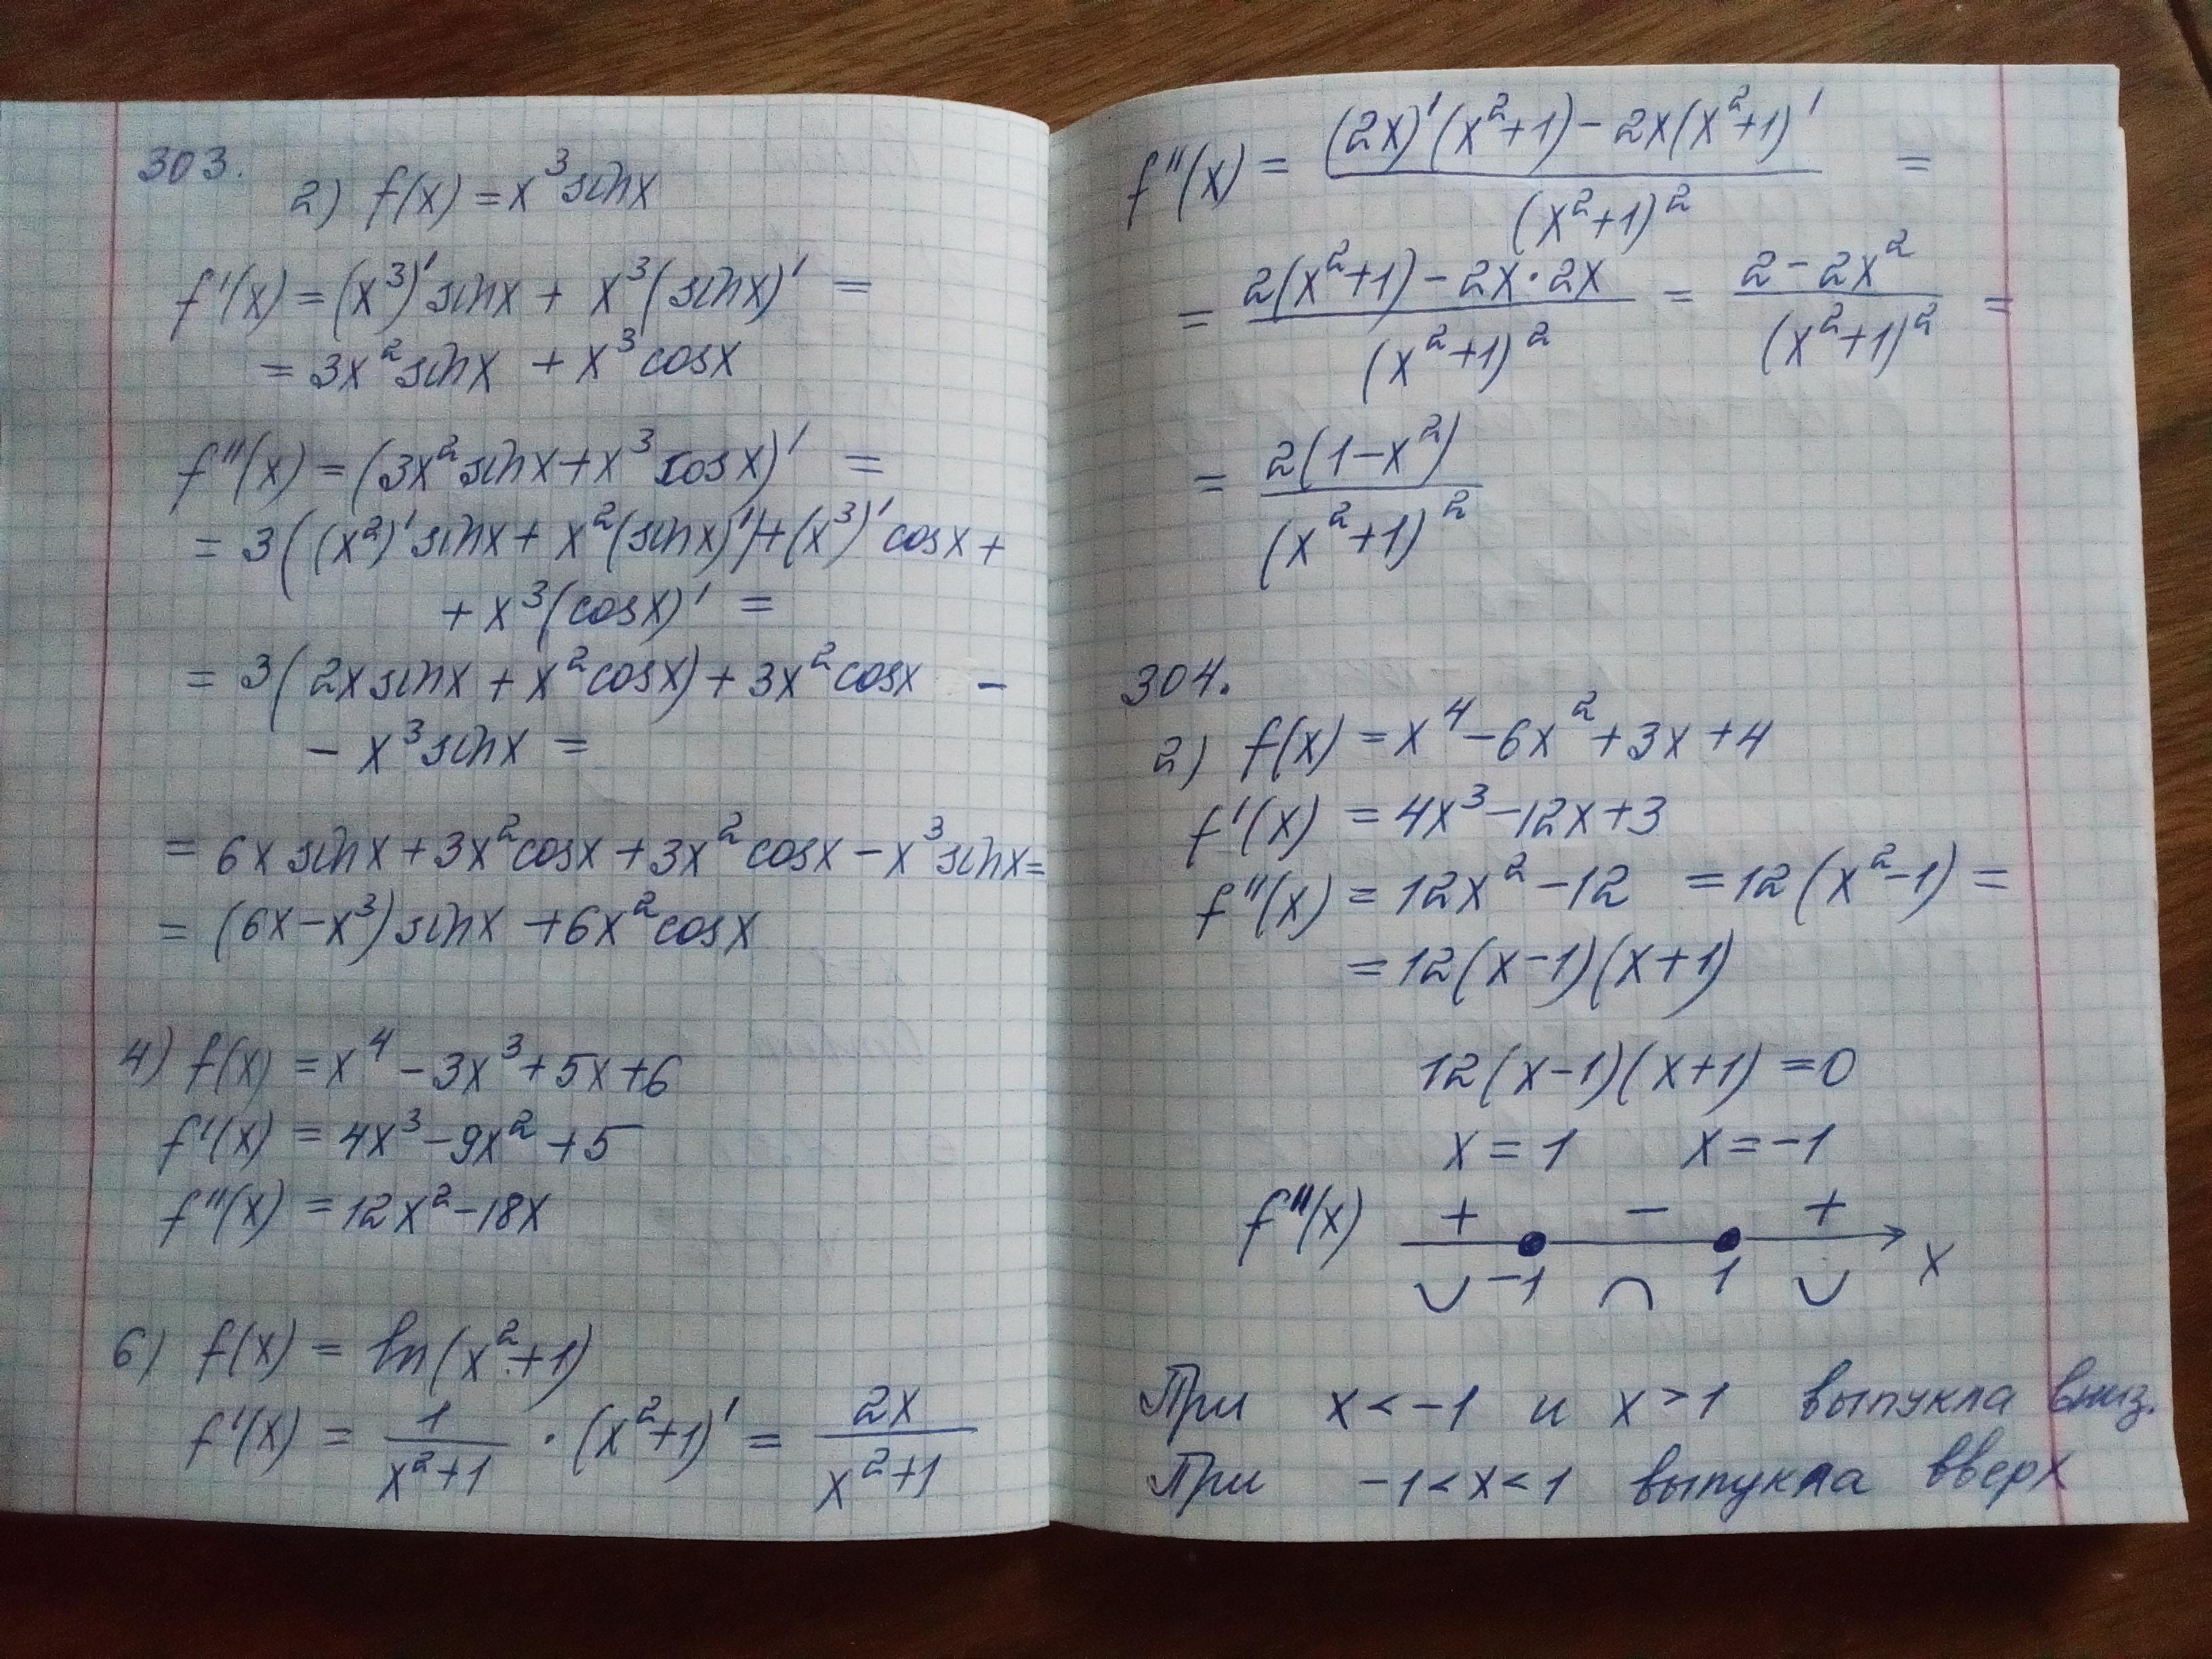 303.
2) f(x) = x³sinx
f'(x) = (x³)'sinx + x³(sinx)' =
= 3x²sinx + x³cosx
f''(x) = (3x²sinx+x³cosx)' =
= 3((x²)'sinx + x²(sinx)')+(x³)'cosx +
+ x³(cosx)' =
= 3(2xsinx + x²cosx) + 3x²cosx −
− x³sinx =
= 6xsinx + 3x²cosx + 3x²cosx − x³sinx =
= (6x−x³)sinx + 6x²cosx
4) f(x) = x⁴ − 3x³ + 5x + 6
f'(x) = 4x³ − 9x² + 5
f''(x) = 12x² − 18x
6) f(x) = ln(x²+1)
f'(x) = 1/(x²+1) · (x²+1)' = 2x/(x²+1)
f''(x) = ((2x)'(x²+1) − 2x(x²+1)')/(x²+1)² =
= (2(x²+1) − 2x·2x)/(x²+1)² = (2−2x²)/(x²+1)² =
= 2(1−x²)/(x²+1)²
304.
2) f(x) = x⁴ − 6x² + 3x + 4
f'(x) = 4x³ − 12x + 3
f''(x) = 12x² − 12 = 12(x²−1) =
= 12(x−1)(x+1)
12(x−1)(x+1) = 0
x = 1 x = −1
f''(x) + − +
∪ −1 ∩ 1 ∪ x
При x < −1 и x > 1 выпукла вниз.
При −1 < x < 1 выпукла вверх